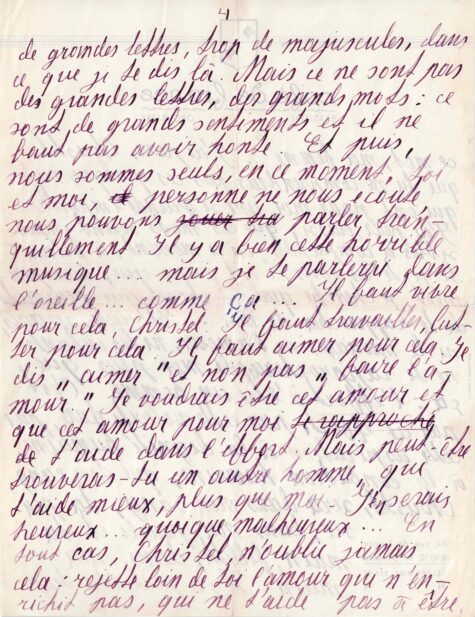 4
de grandes lettres, trop de majuscules, dans
ce que je te dis là. Mais ce ne sont pas
des grandes lettres, des grands mots : ce
sont de grands sentiments et il ne
faut pas avoir honte. Et puis,
nous sommes seuls, en ce moment, toi
et moi, personne ne nous écoute
nous pouvons parler tran-
quillement. Il y a bien cette horrible
musique... mais je te parlerai dans
l'oreille... comme ça... Il faut vivre
pour cela, Christel. Il faut travailler, lut-
ter pour cela. Il faut aimer pour cela. Je
dis „aimer" et non pas „faire l'a-
mour." Je voudrais être cet amour et
que cet amour pour moi se rapproche
de t'aide dans l'effort. Mais peut-être
trouveras-tu un autre homme, qui
t'aide mieux, plus que moi. J'en serais
heureux... quoique malheureux... En
tout cas, Christel, n'oublie jamais
cela : rejette loin de toi l'amour qui n'en-
richit pas, qui ne t'aide pas à être